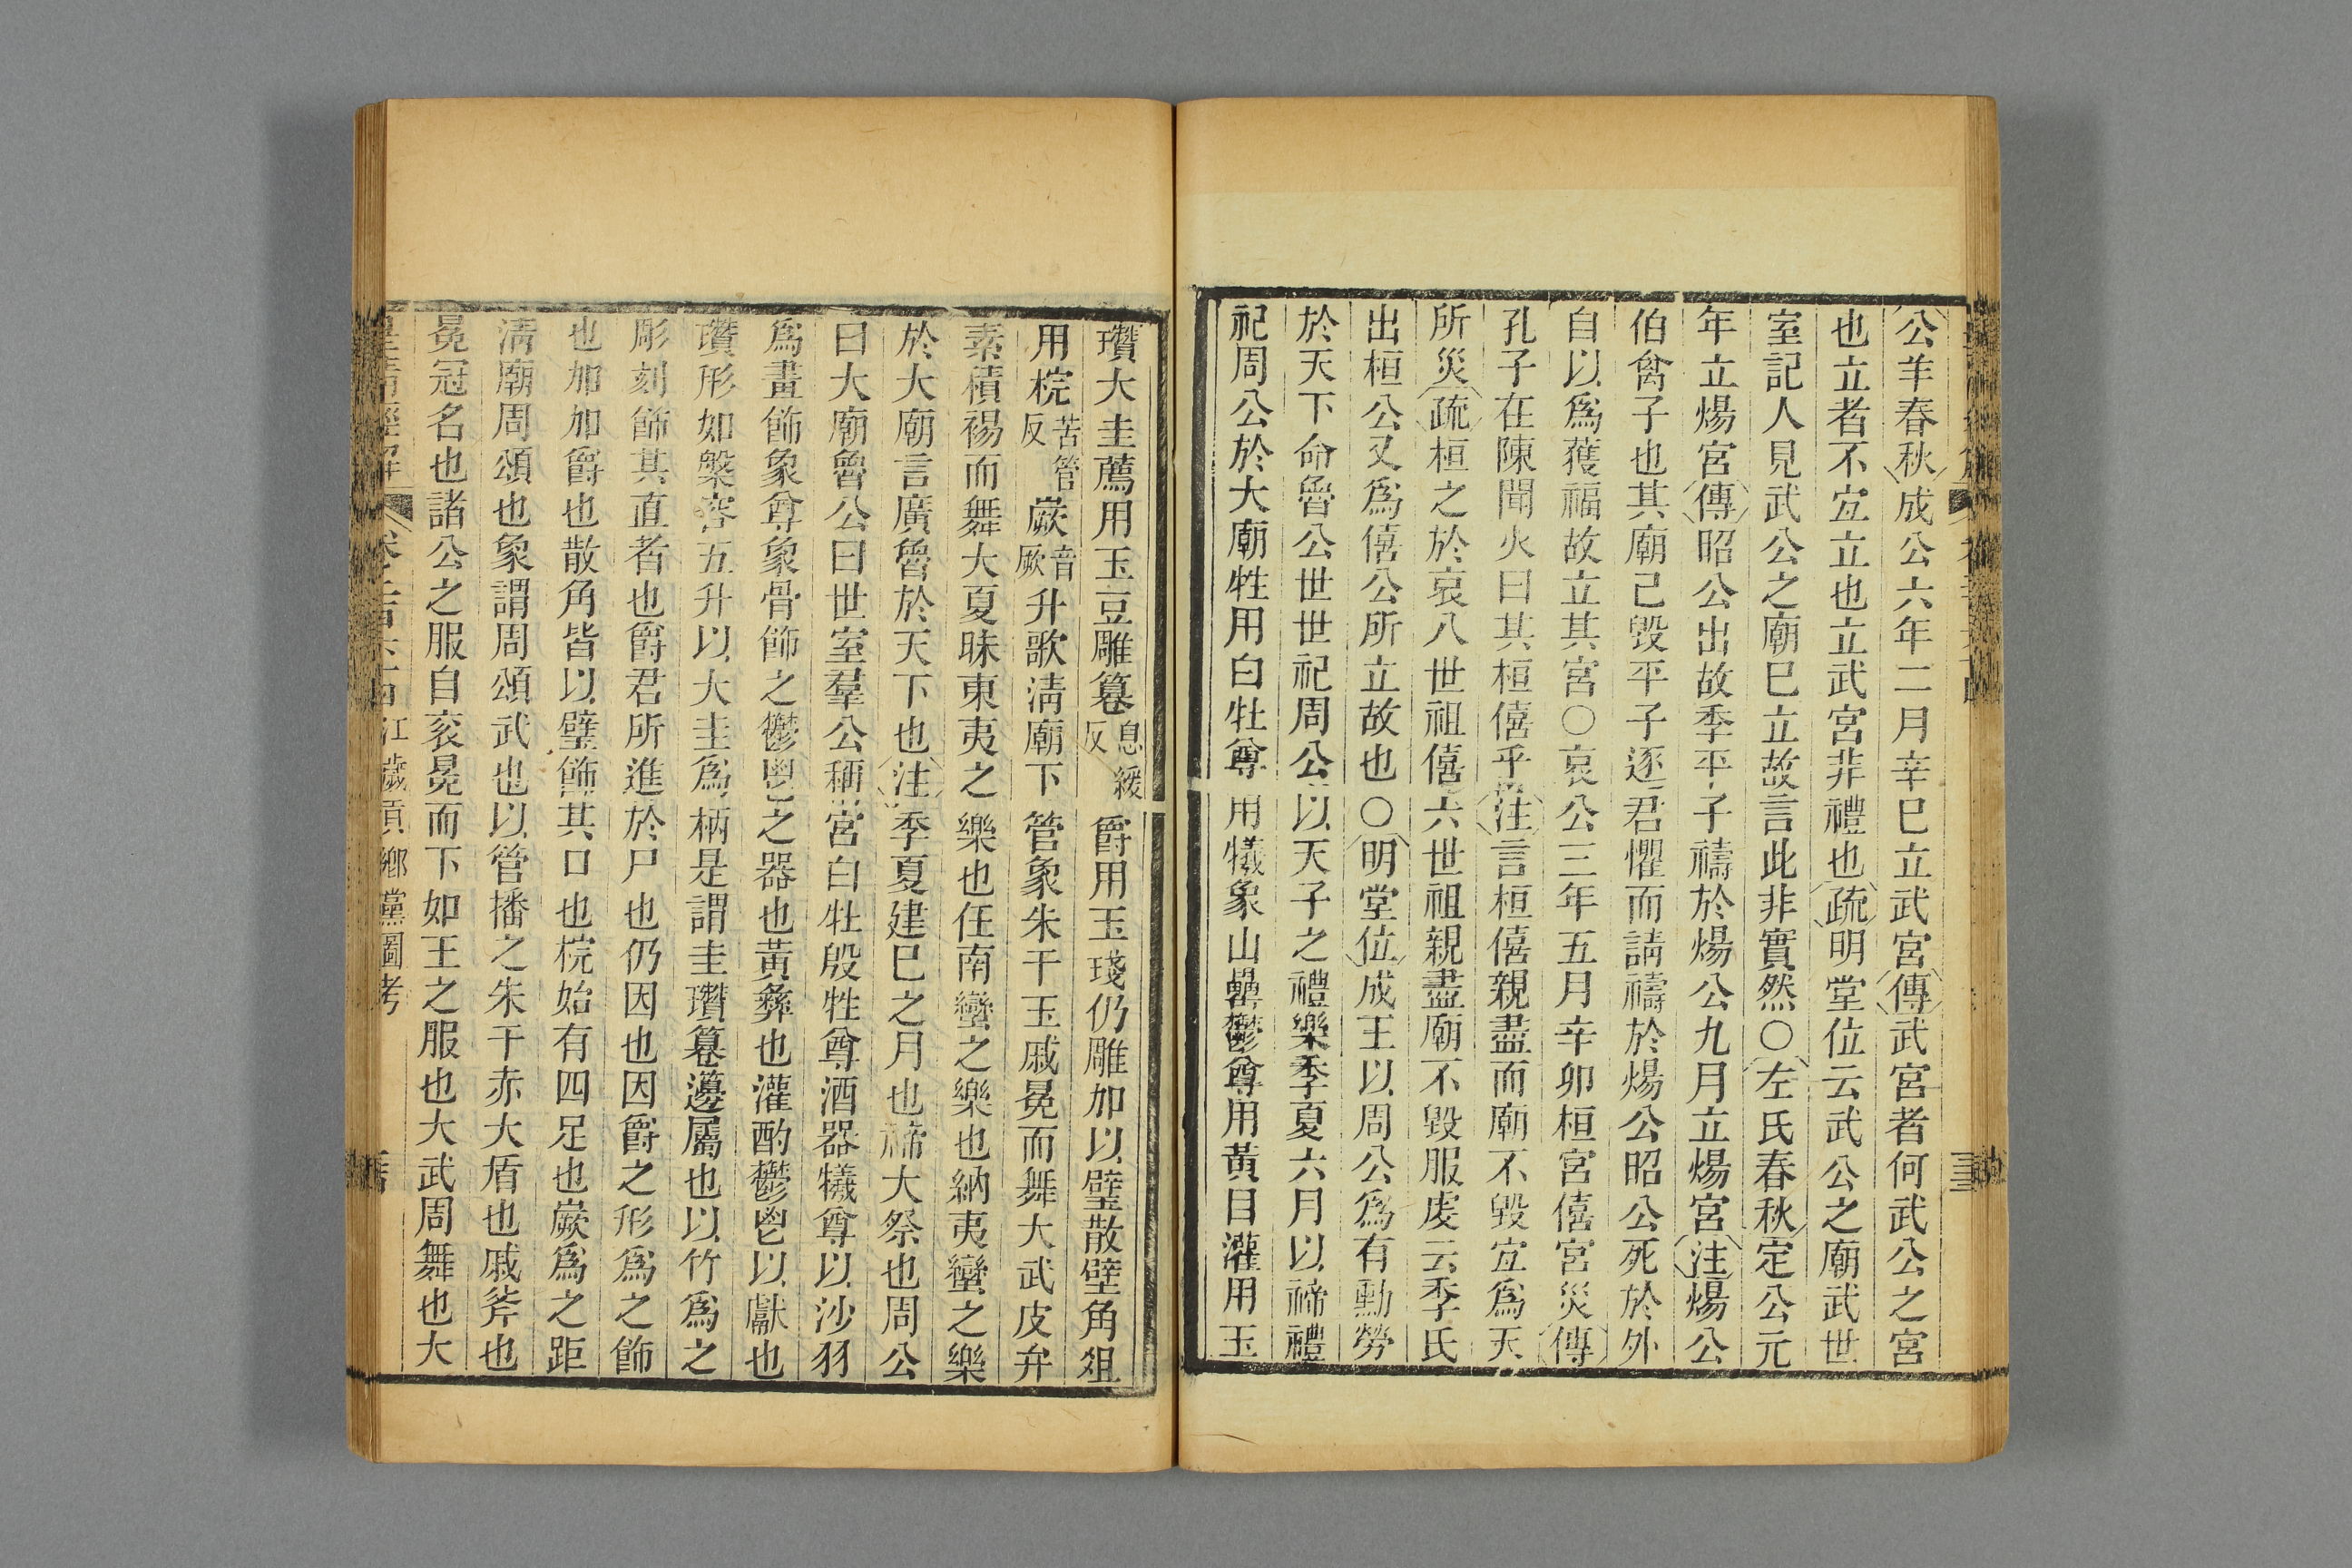 公羊春秋成公六年二月辛巳立武宮傳武宮者何武公之宮
也立者不宜立也立武宮非禮也疏明堂位云武公之廟武世
室記人見武公之廟巳立故言此非實然○左氏春秋定公元
年立煬宮傳昭公出故季平子禱於煬公九月立煬宮注煬公
伯禽子也其廟己毀平子逐君懼而請禱於煬公昭公死於外
自以爲獲福故立其宮○哀公三年五月辛卯桓宮僖宮災傳
孔子在陳聞火曰其桓僖乎注言桓僖親盡而廟不毀宜爲天
所災疏桓之於哀八世祖僖六世祖親盡廟不毀服虔云季氏
出桓公又爲僖公所立故也○明堂位成王以周公爲有勳勞
於天下命魯公世世祀周公以天子之禮樂季夏六月以禘禮
祀周公於大廟牲用白牡尊用犧象山罍鬱尊用黃目灌用玉
瓚大圭薦用玉豆雕篹息緩反爵用玉琖仍雕加以璧散璧角俎
用梡苦管反嶡音厥升歌淸廟下管象朱干玉戚冕而舞大武皮弁
素積裼而舞大夏昧東夷之樂也任南蠻之樂也納夷蠻之樂
於大廟言廣魯於天下也注季夏建巳之月也禘大祭也周公
曰大廟魯公曰世室羣公稱宮白牡殷牲尊酒器犧尊以沙羽
爲畫飾象尊象骨飾之鬱鬯之器也黃彝也灌酌鬱鬯以獻也
瓚形如槃容五升以大圭爲柄是謂圭瓚篹籩屬也以竹爲之
彫刻飾其直者也爵君所進於尸也仍因也因爵之形爲之飾
也加加爵也散角皆以璧飾其口也梡始有四足也嶡爲之距
淸廟周頌也象謂周頌武也以管播之朱干赤大盾也戚斧也
冕冠名也諸公之服自衮冕而下如王之服也大武周舞也大
江歲貢鄉黨圖考